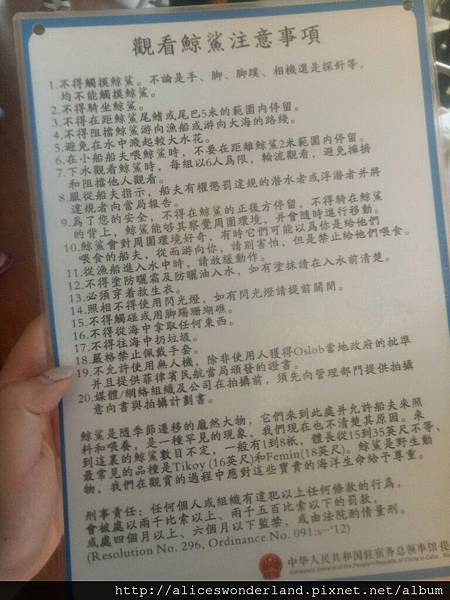 觀看鯨鯊注意事項
1.不得觸摸鯨鯊。不論是手、腳、腳蹼、相機還是探針等，
均不能觸摸鯨鯊。
2.不得騎坐鯨鯊。
3.不得在距鯨鯊尾鰭或尾巴5米的範圍內停留。
4.不得阻擋鯨鯊游向漁船或游向大海的路綫。
5.避免在水中濺起較大水花。
6.在小船船夫喂鯨鯊時，不要在距離鯨鯊2米範圍內停留。
7.下水觀看鯨鯊時，每組以6人爲限，輪流觀看，避免擁擠
和阻擋他人觀看。
8.服從船夫指示，船夫有權懲罰違規的潛水者或浮潛者并將
違規者向當局報告。
9.爲了您的安全，不得在鯨鯊的正後方停留。不得騎在鯨鯊
的背上，鯨鯊能够其察覺周圍環境，并會隨時進行移動。
10.鯨鯊會對周圍環境好奇，有時它們可能以爲你是給他們
喂食的船夫，從而游向你，請別害怕，但是禁止給他們喂食。
11.從漁船進入水中時，請放緩動作。
12.不得塗防曬霜及防曬油入水，如有塗抹請在入水前清楚。
13.必須穿着救生衣。
14.照相不得使用閃光燈，如有閃光燈請提前關閉。
15.不得觸碰或用脚踢珊瑚礁。
16.不得從海中拿取任何東西。
17.不得往海中扔垃圾。
18.嚴格禁止佩戴手套。
19.不允許使用無人機，除非使用人獲得Oslob當地政府的批準
并且提供菲律賓民航當局頒發的證書。
20.媒體/網絡組織及公司在拍攝前，須先向管理部門提供拍攝
意向書與拍攝計劃書。
鯨鯊是隨季節遷移的龐然大物，它們來到此處并允許船夫來照
料和喂養，是一種罕見的現象，我們現在也不清楚其原因。來
到這裏的鯨鯊數目不定，一般有1到8衹，體長從15到35英尺不等，
最常見的品種是Tikoy (16英尺)和Femin(18英尺)。鯨鯊是野生動
物，我們在觀賞的過程中應對這些寶貴的海洋生命給予尊重。
刑事責任：任何個人或組織有違犯以上任何條款的行為，
會被處以兩千比索以上、兩千五百比索以下的罰款，
或處四個月以上、六個月以下監禁，或由法院酌情量刑。
(Resolution No. 296, Ordinance No. 091:s-'12)
中华人民共和国驻宿务总领事馆 提
Consulate General of the People's Republic of China in Cebu
http://alicesworderland.pixnet.net/album